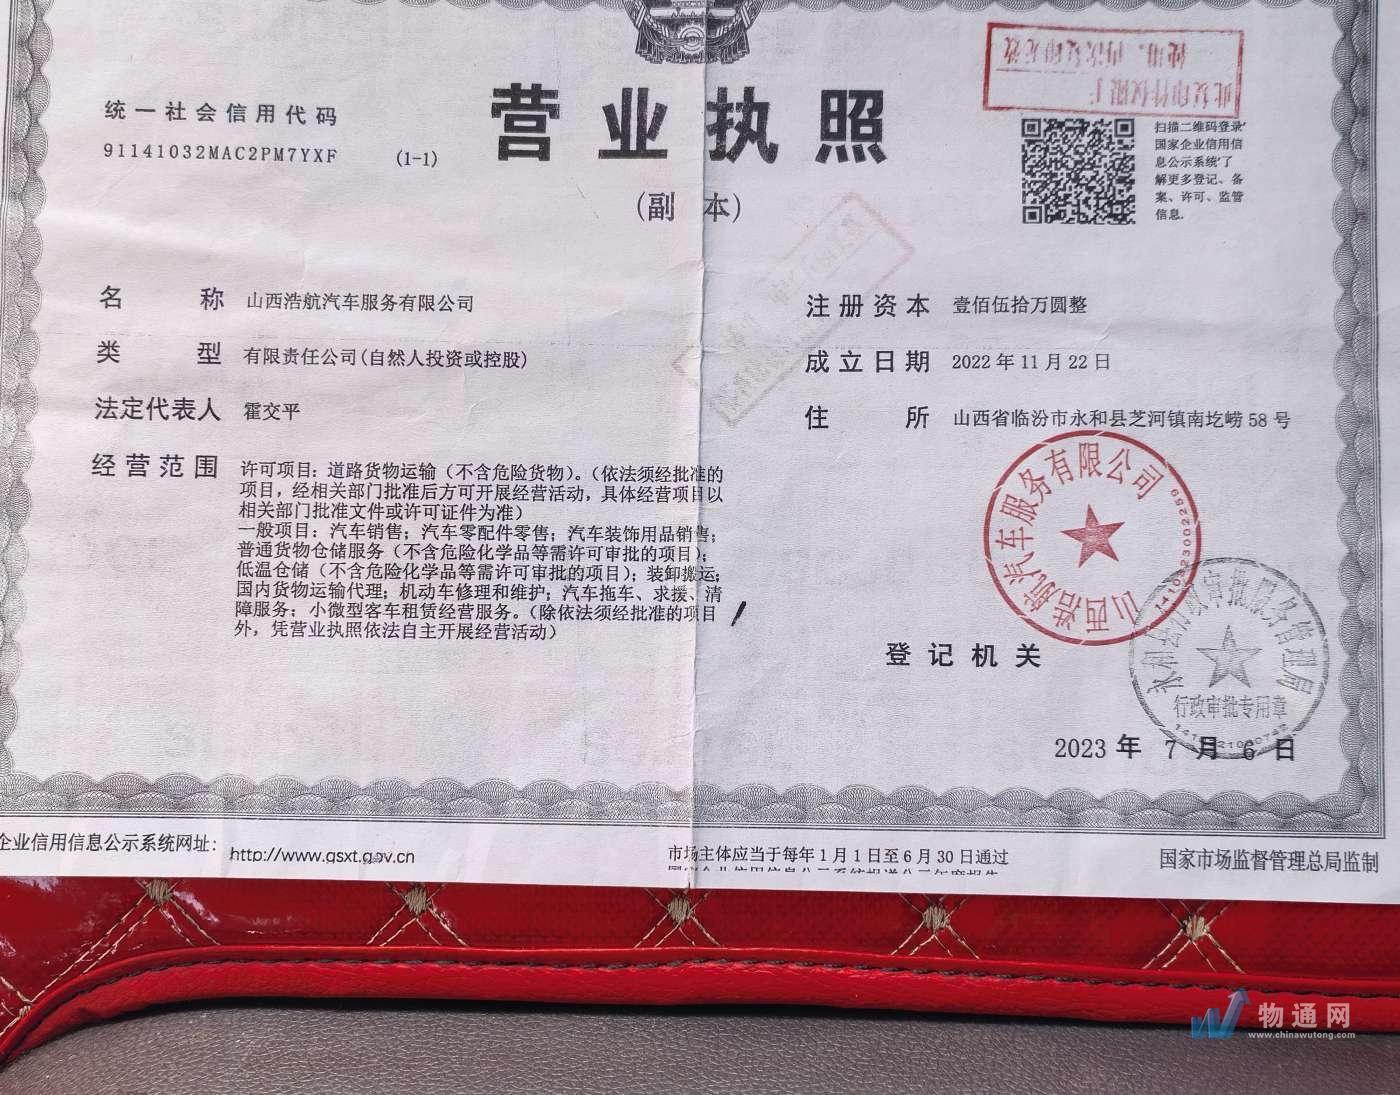 此复印件仅限于
使用，再次复印无效
统一社会信用代码
91141032MAC2PM7YXF
(1-1)
营业执照
(副 本)
扫描二维码登录'
国家企业信用信
息公示系统'了
解更多登记、备
案、许可、监管
信息.
名 称 山西浩航汽车服务有限公司
类 型 有限责任公司(自然人投资或控股)
法定代表人 霍交平
经营范围 许可项目：道路货物运输（不含危险货物）。（依法须经批准的
项目，经相关部门批准后方可开展经营活动，具体经营项目以
相关部门批准文件或许可证件为准）
一般项目：汽车销售；汽车零配件零售；汽车装饰用品销售；
普通货物仓储服务（不含危险化学品等需许可审批的项目）；
低温仓储（不含危险化学品等需许可审批的项目）；装卸搬运；
国内货物运输代理；机动车修理和维护；汽车拖车、求援、清
障服务；小微型客车租赁经营服务。（除依法须经批准的项目
外，凭营业执照依法自主开展经营活动）
注册资本 壹佰伍拾万圆整
成立日期 2022 年 11 月 22 日
住 所 山西省临汾市永和县芝河镇南圪崂 58 号
山西浩航汽车服务有限公司
登记机关
永和县行政审批服务管理局
行政审批专用章
2023 年 7 月 6 日
企业信用信息公示系统网址：
http://www.gsxt.gov.cn
市场主体应当于每年 1 月 1 日至 6 月 30 日通过
国家企业信用信息公示系统报送公示年度报告
国家市场监督管理总局监制
物通网
www.chinawutong.com